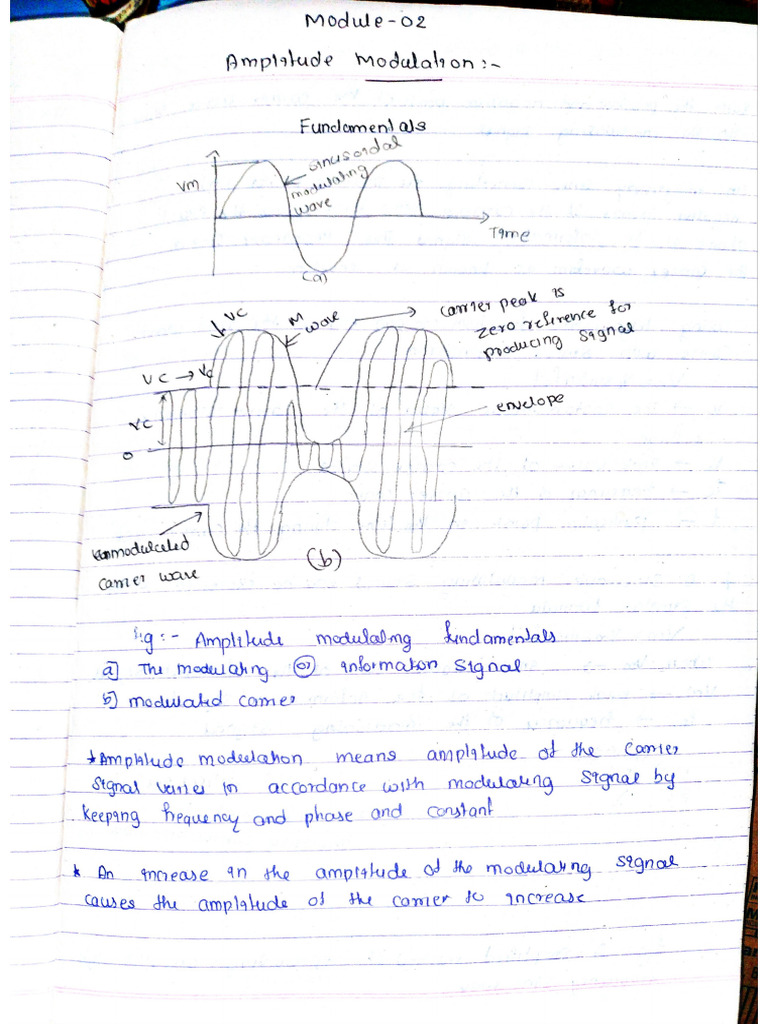 Module-02
Amplitude Modulation :-
Fundamentals
Vm
sinusoidal
modulating
wave
Time
(a)
VC
M
wave
carrier peak is
zero reference for
producing signal
VC → Vc
VC
0
envelope
unmodulated
carrier wave
(b)
Fig :- Amplitude modulating fundamentals
a] The modulating (or) information signal
b] modulated carrier
* Amplitude modulation means amplitude of the carrier
signal varies in accordance with modulating signal by
keeping frequency and phase and constant
* An increase in the amplitude of the modulating signal
causes the amplitude of the carrier to increase